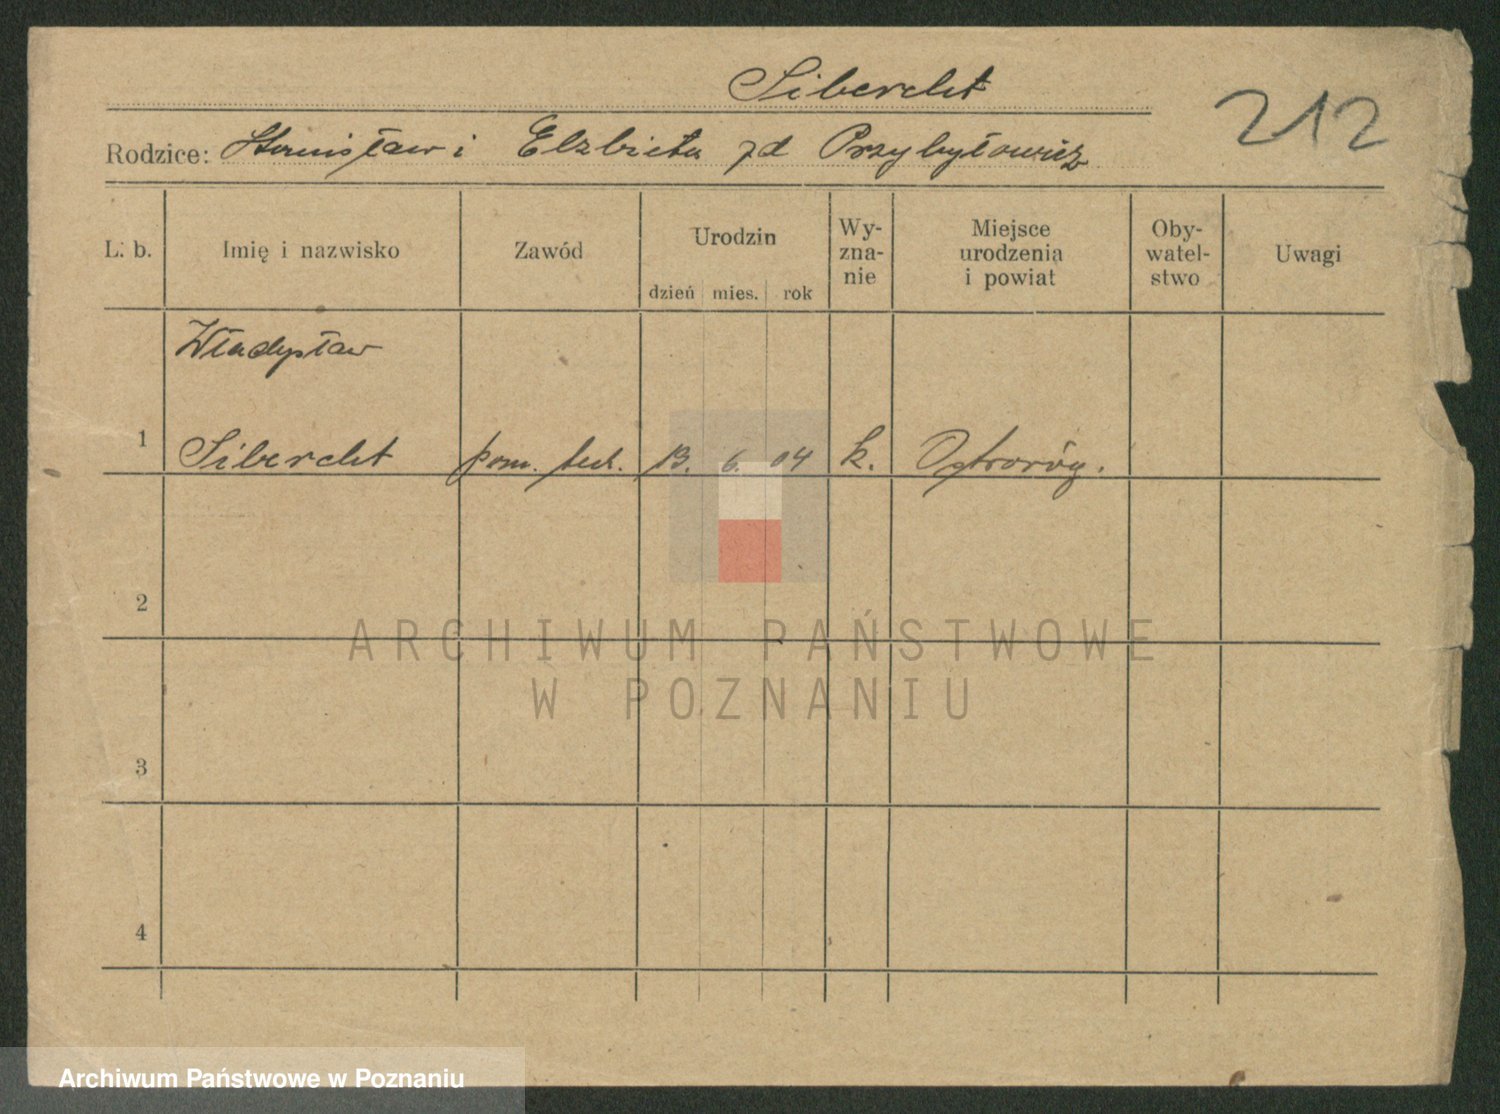 Sibercht
212
Rodzice: Stanisław i Elzbieta zd Przybyłowicz
L. b.
Imię i nazwisko
Zawód
Urodzin
dzień mies. rok
Wy-
zna-
nie
Miejsce
urodzenia
i powiat
Oby-
watel-
stwo
Uwagi
Władysław
1 Sibercht pom. tech. 13. 6. 04 k. Ostroróg.
2
3
4
ARCHIWUM PAŃSTWOWE
W POZNANIU
Archiwum Państwowe w Poznaniu